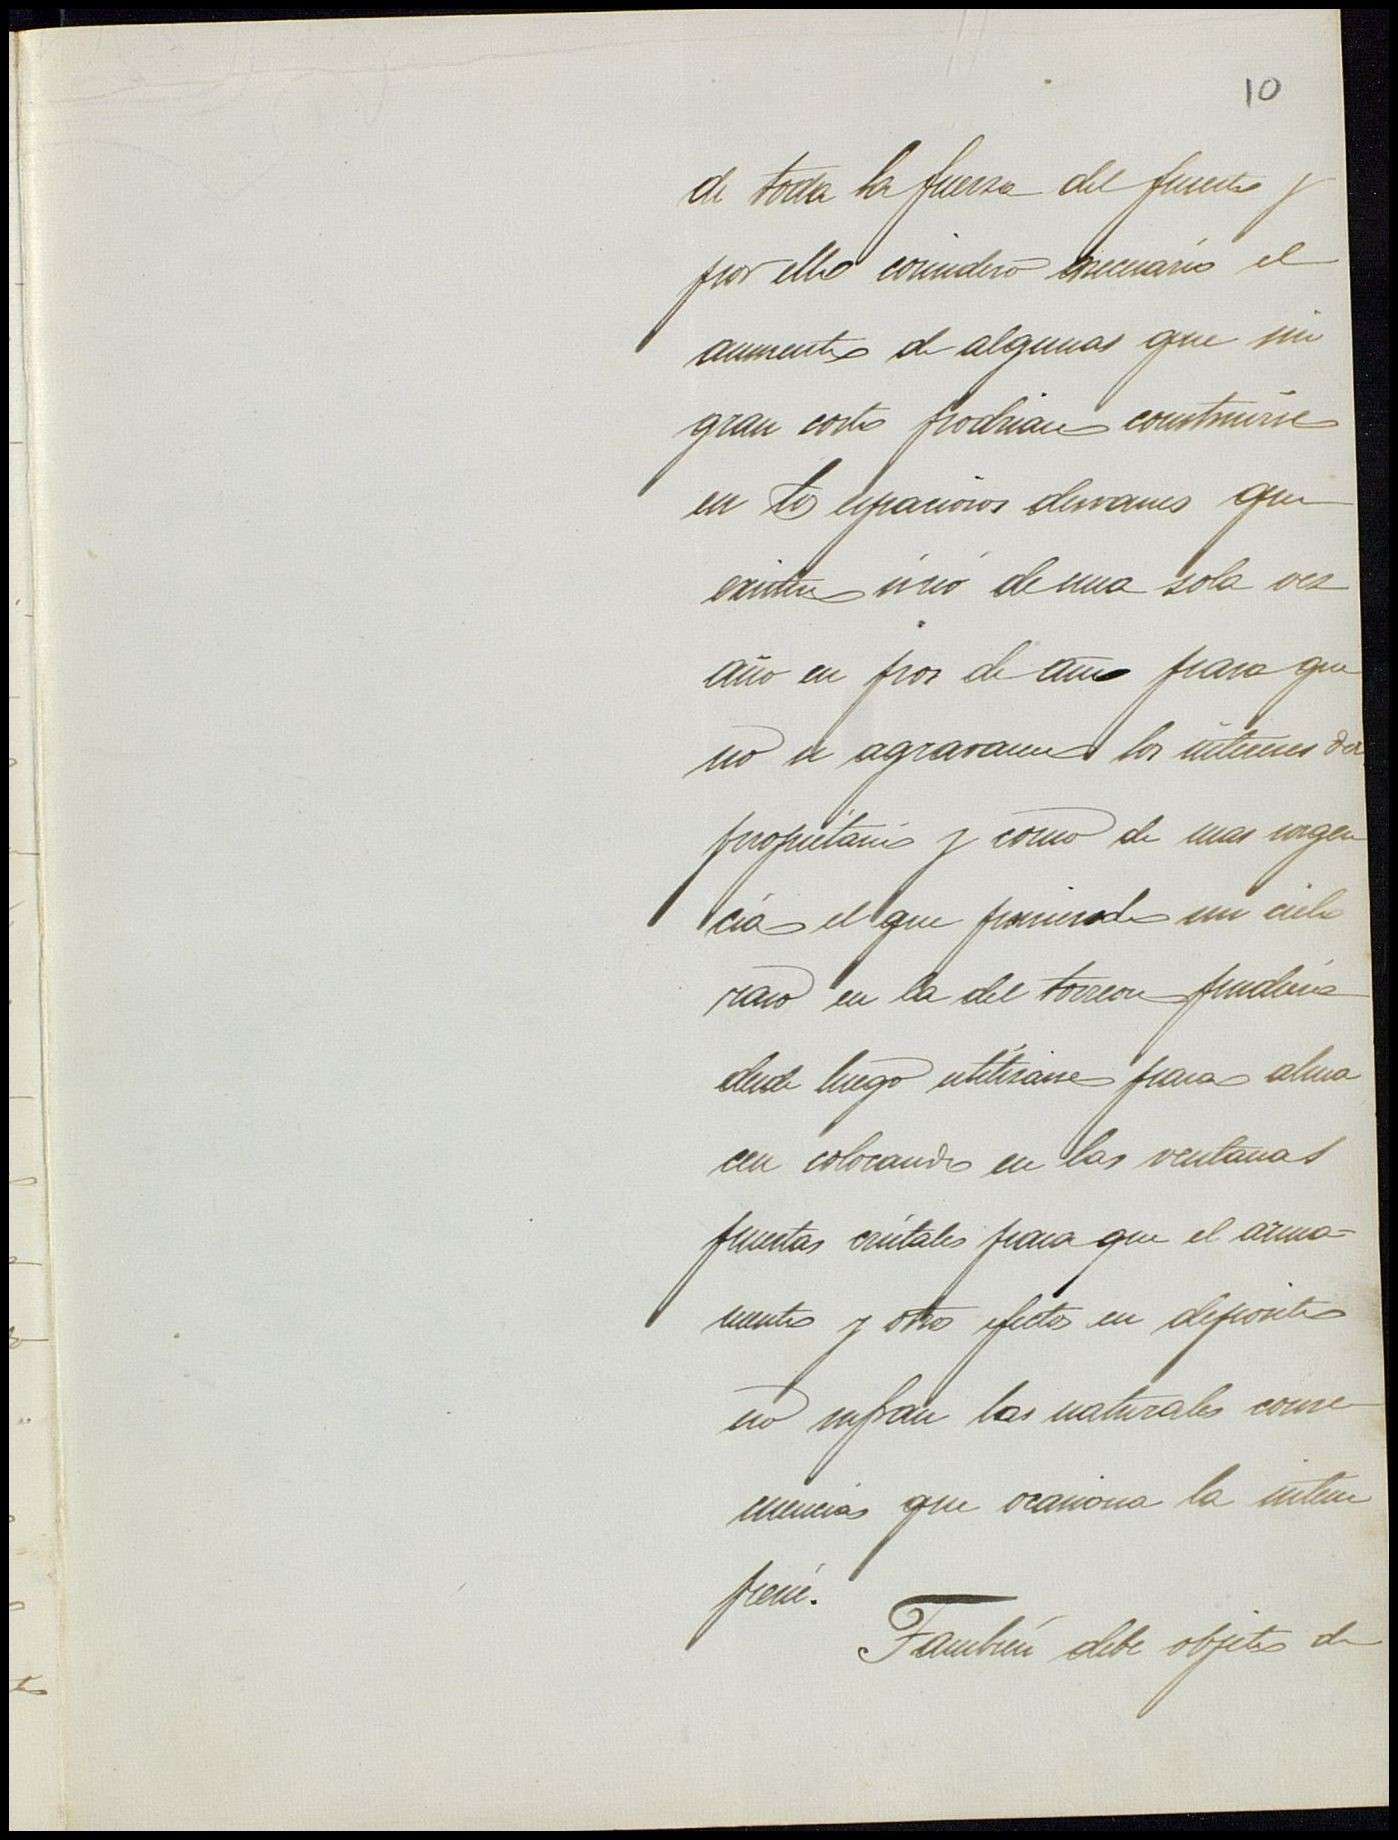 10
de toda la fuerza del puesto y
por ello considero necesario el
aumento de algunas que sin
gran costo podrian construirse
en los espaciosos desvanes que
existen sinó de una sola vez
año en pos de año para que
no se agravasen los intereses del
propietario y como de mas urgen
cia el que poniendo un cielo
raso en la del torreon pudiera
desde luego utilizarse para alma
cen colocando en las ventanas
puertas cristales para que el arma-
mento y otros efectos en deposito
no sufran las naturales conse
cuencias que ocasiona la intem
perie.
También debe objeto de